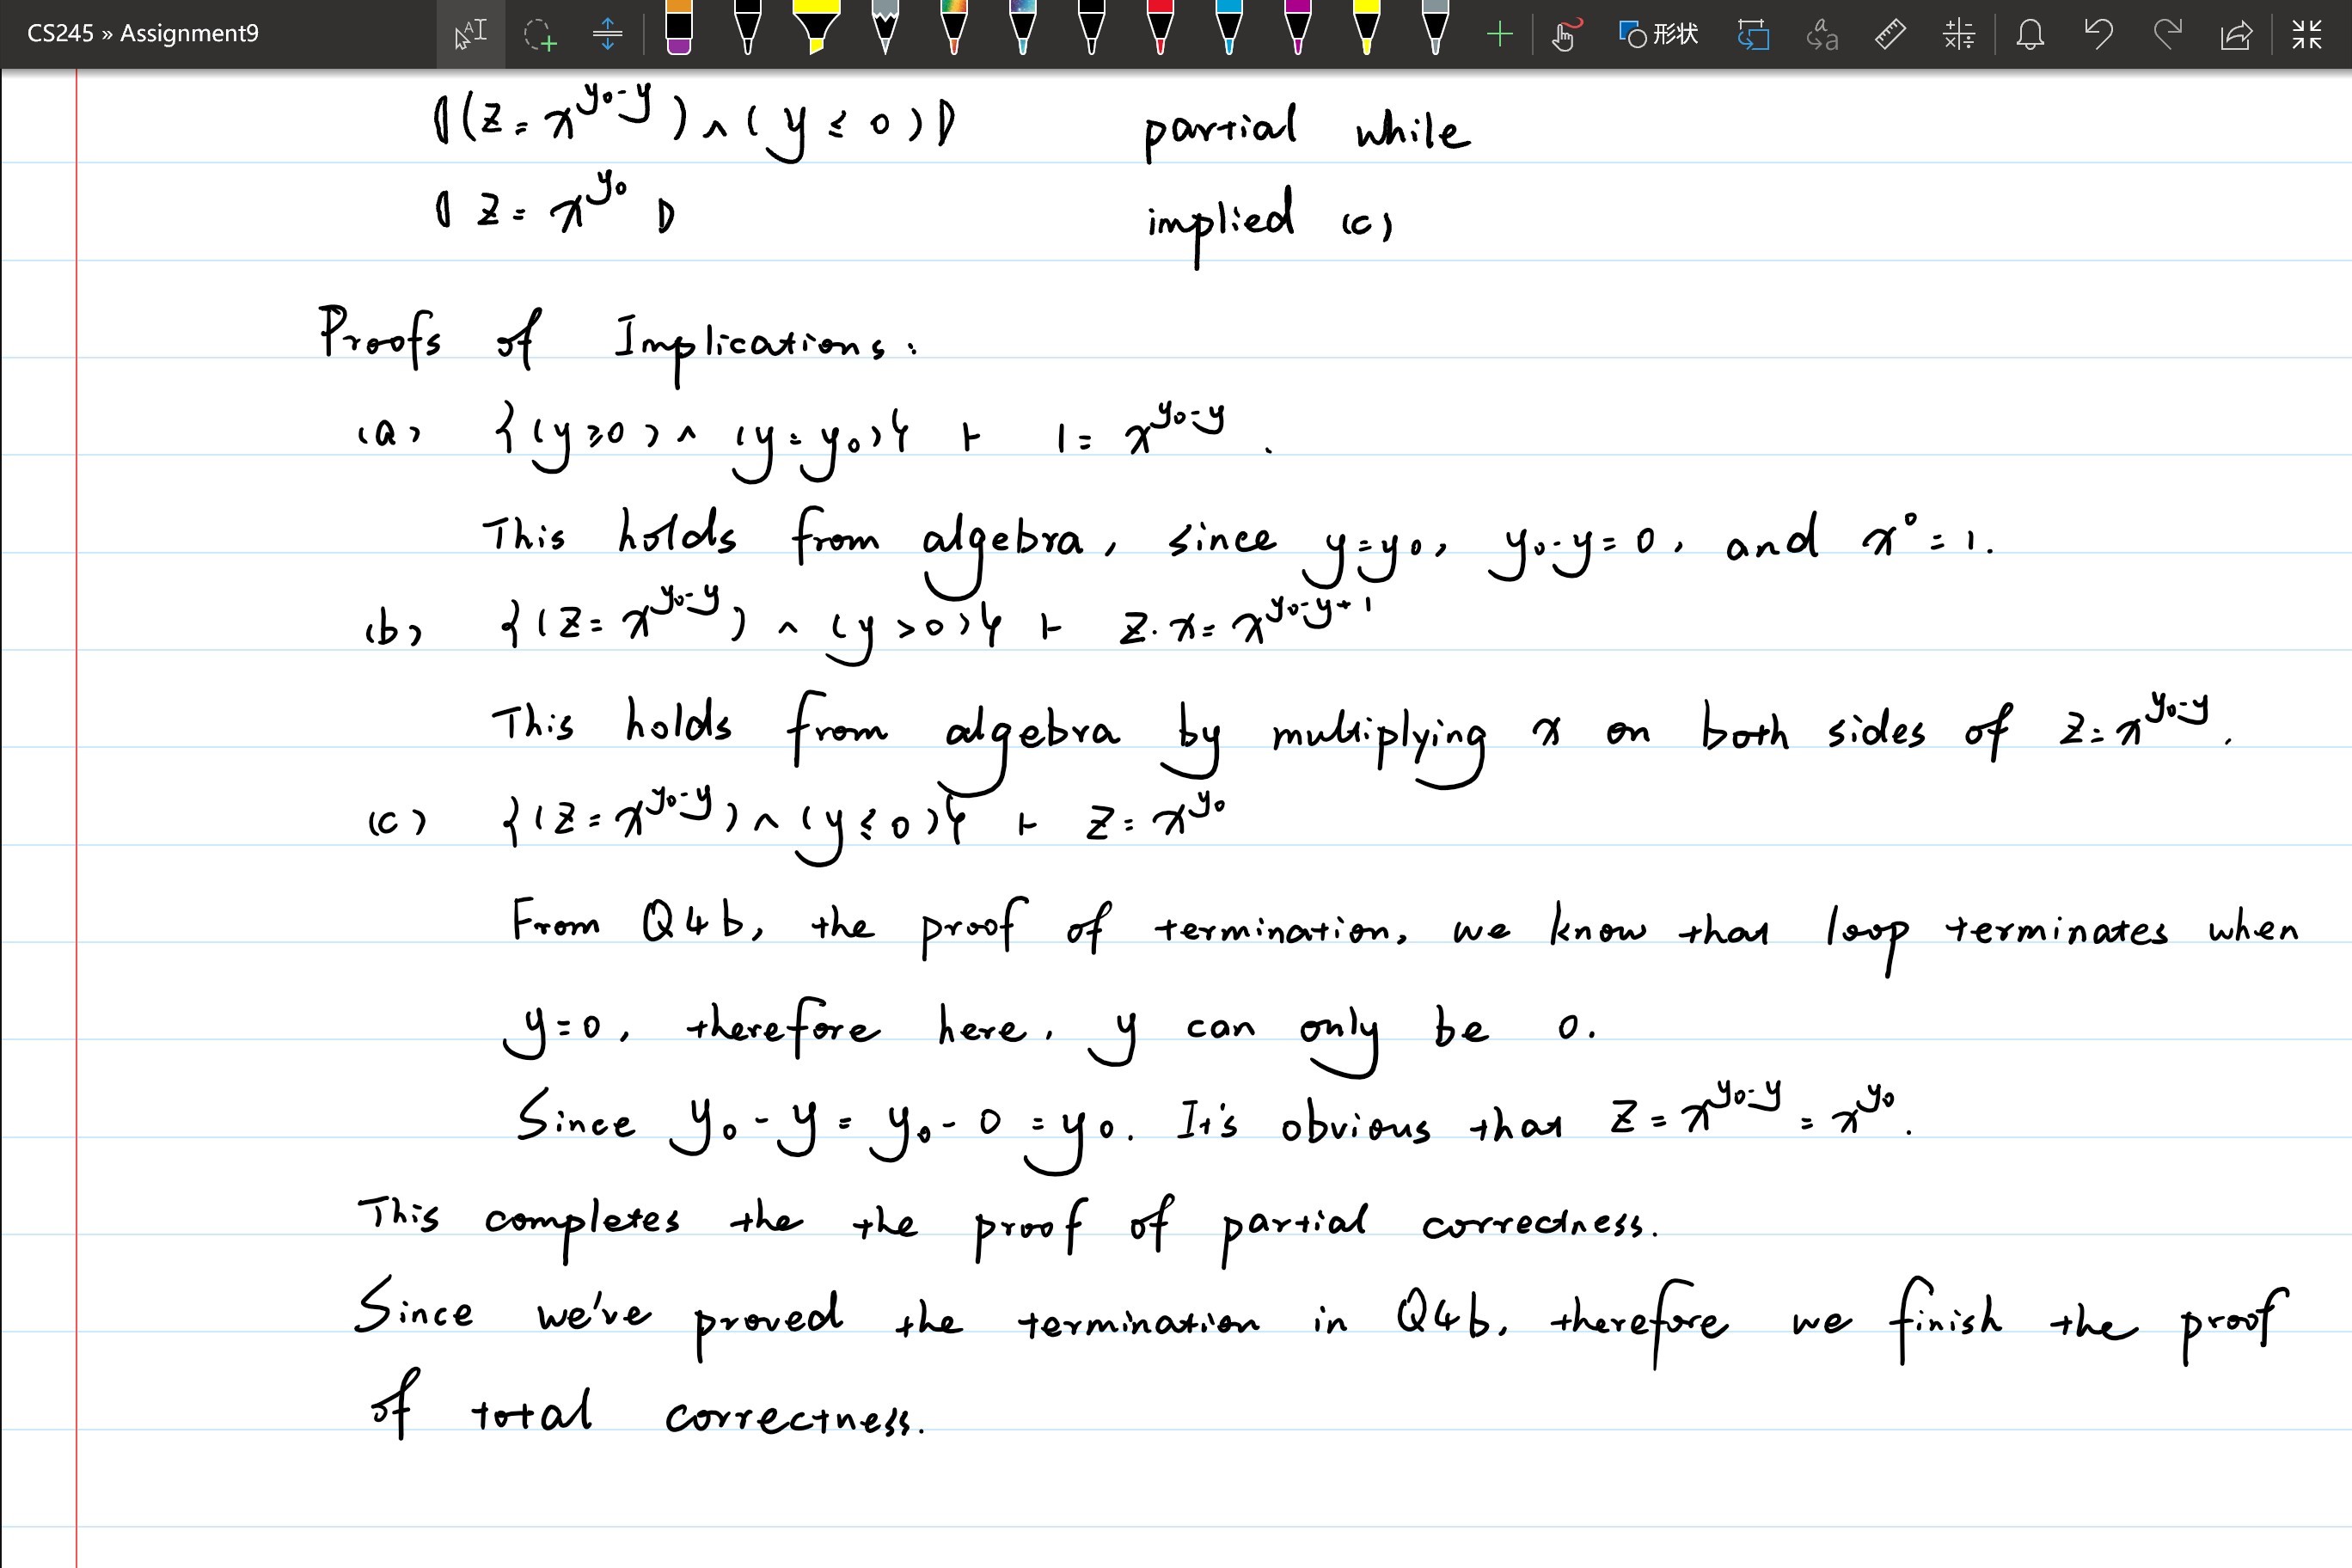 CS245 » Assignment9 形状
⦇(z = x^{y₀-y}) ∧ (y ≤ 0)⦈ partial while
⦇ z = x^{y₀} ⦈ implied (c)
Proofs of Implications:
(a) {(y ≥ 0) ∧ (y = y₀)} ⊢ 1 = x^{y₀-y}.
This holds from algebra, since y = y₀, y₀-y = 0, and x⁰ = 1.
(b) {(z = x^{y₀-y}) ∧ (y > 0)} ⊢ z·x = x^{y₀-y+1}
This holds from algebra by multiplying x on both sides of z = x^{y₀-y}.
(c) {(z = x^{y₀-y}) ∧ (y ≤ 0)} ⊢ z = x^{y₀}
From Q4b, the proof of termination, we know that loop terminates when
y = 0, therefore here, y can only be 0.
Since y₀ - y = y₀ - 0 = y₀. It's obvious that z = x^{y₀-y} = x^{y₀}.
This completes the the proof of partial correctness.
Since we've proved the termination in Q4b, therefore we finish the proof
of total correctness.